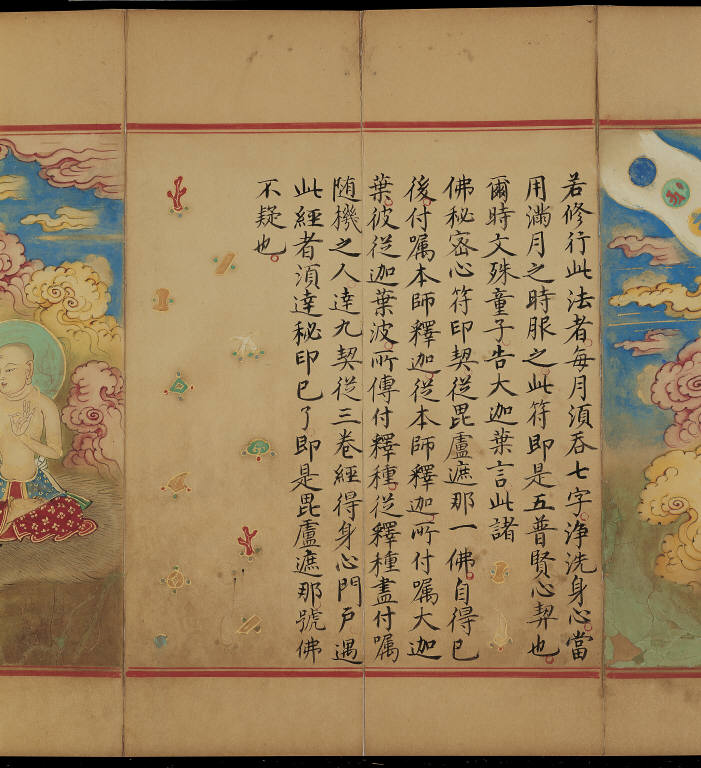 若修行此法者每月須吞七字淨洗身心當
用滿月之時服之此符即是五普賢心契也
爾時文殊童子告大迦葉言此諸
佛秘密心符印契從毘盧遮那一佛自得已
後付嘱本師釋迦從本師釋迦所付嘱大迦
葉彼從迦葉波所傳付釋種從釋種盡付嘱
随機之人達九契從三卷經得身心門戶遇
此經者湏達秘印已了即是毘盧遮那號佛
不疑也